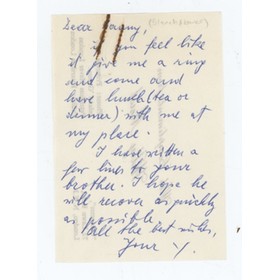 Dear Danny,
if you feel like
it give me a ring
and come and
have lunch (tea or
dinner) with me at
my place.
I have written a
few lines to your
brother. I hope he
will recover as quickly
as possible.
All the best wishes,
Your